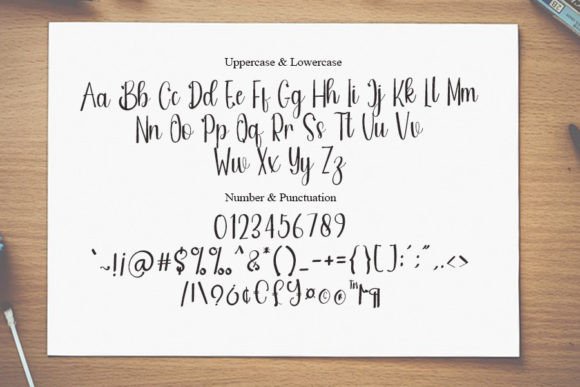 Uppercase & Lowercase
Aa Bb Cc Dd Ee Ff Gg Hh Ii Jj Kk Ll Mm
Nn Oo Pp Qq Rr Ss Tt Uu Vv
Ww Xx Yy Zz
Number & Punctuation
0123456789
`~!¡@#$%‰^&*()_-+={}[]:´;"‚.<>
/|\?6¢€£¥¤ºº™¶